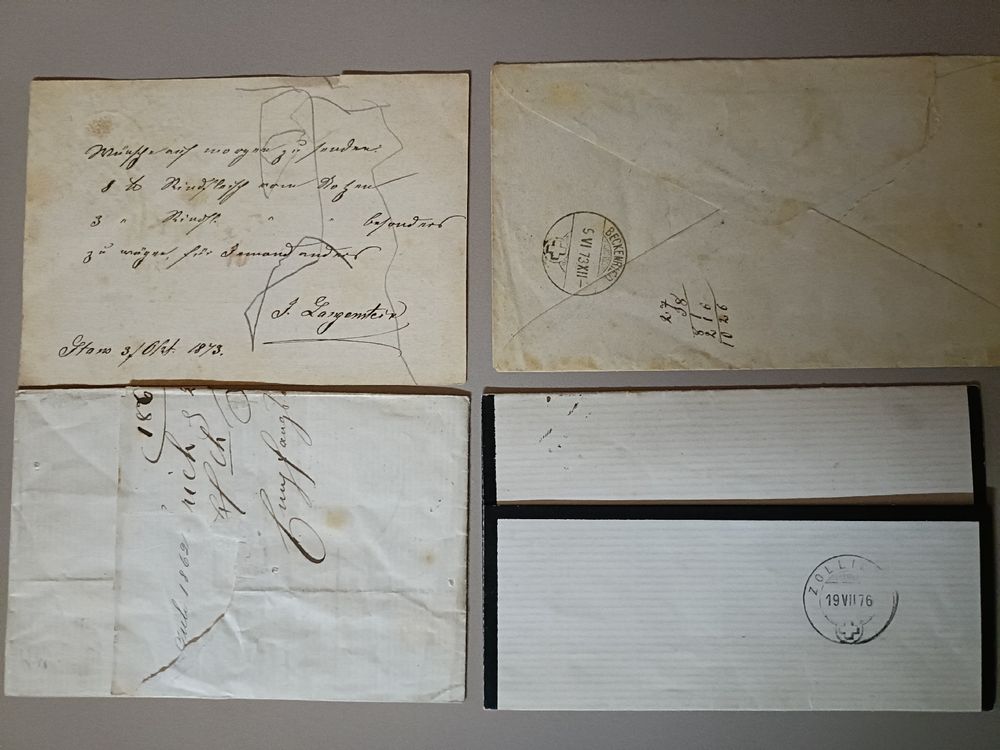 Wünsche auf morgen zu senden:
8 ℔ Rindfleisch vom
3 " Rindfl. " " besonders
zu wägen für Jemand anders
J. Langenstein
Stans 3/Okt. 1873.
BECKENRIED
5 VI 73 XII–
27
38
81
216
1026
186
rich
Empfangs
1862
ZOLLI
19 VII 76